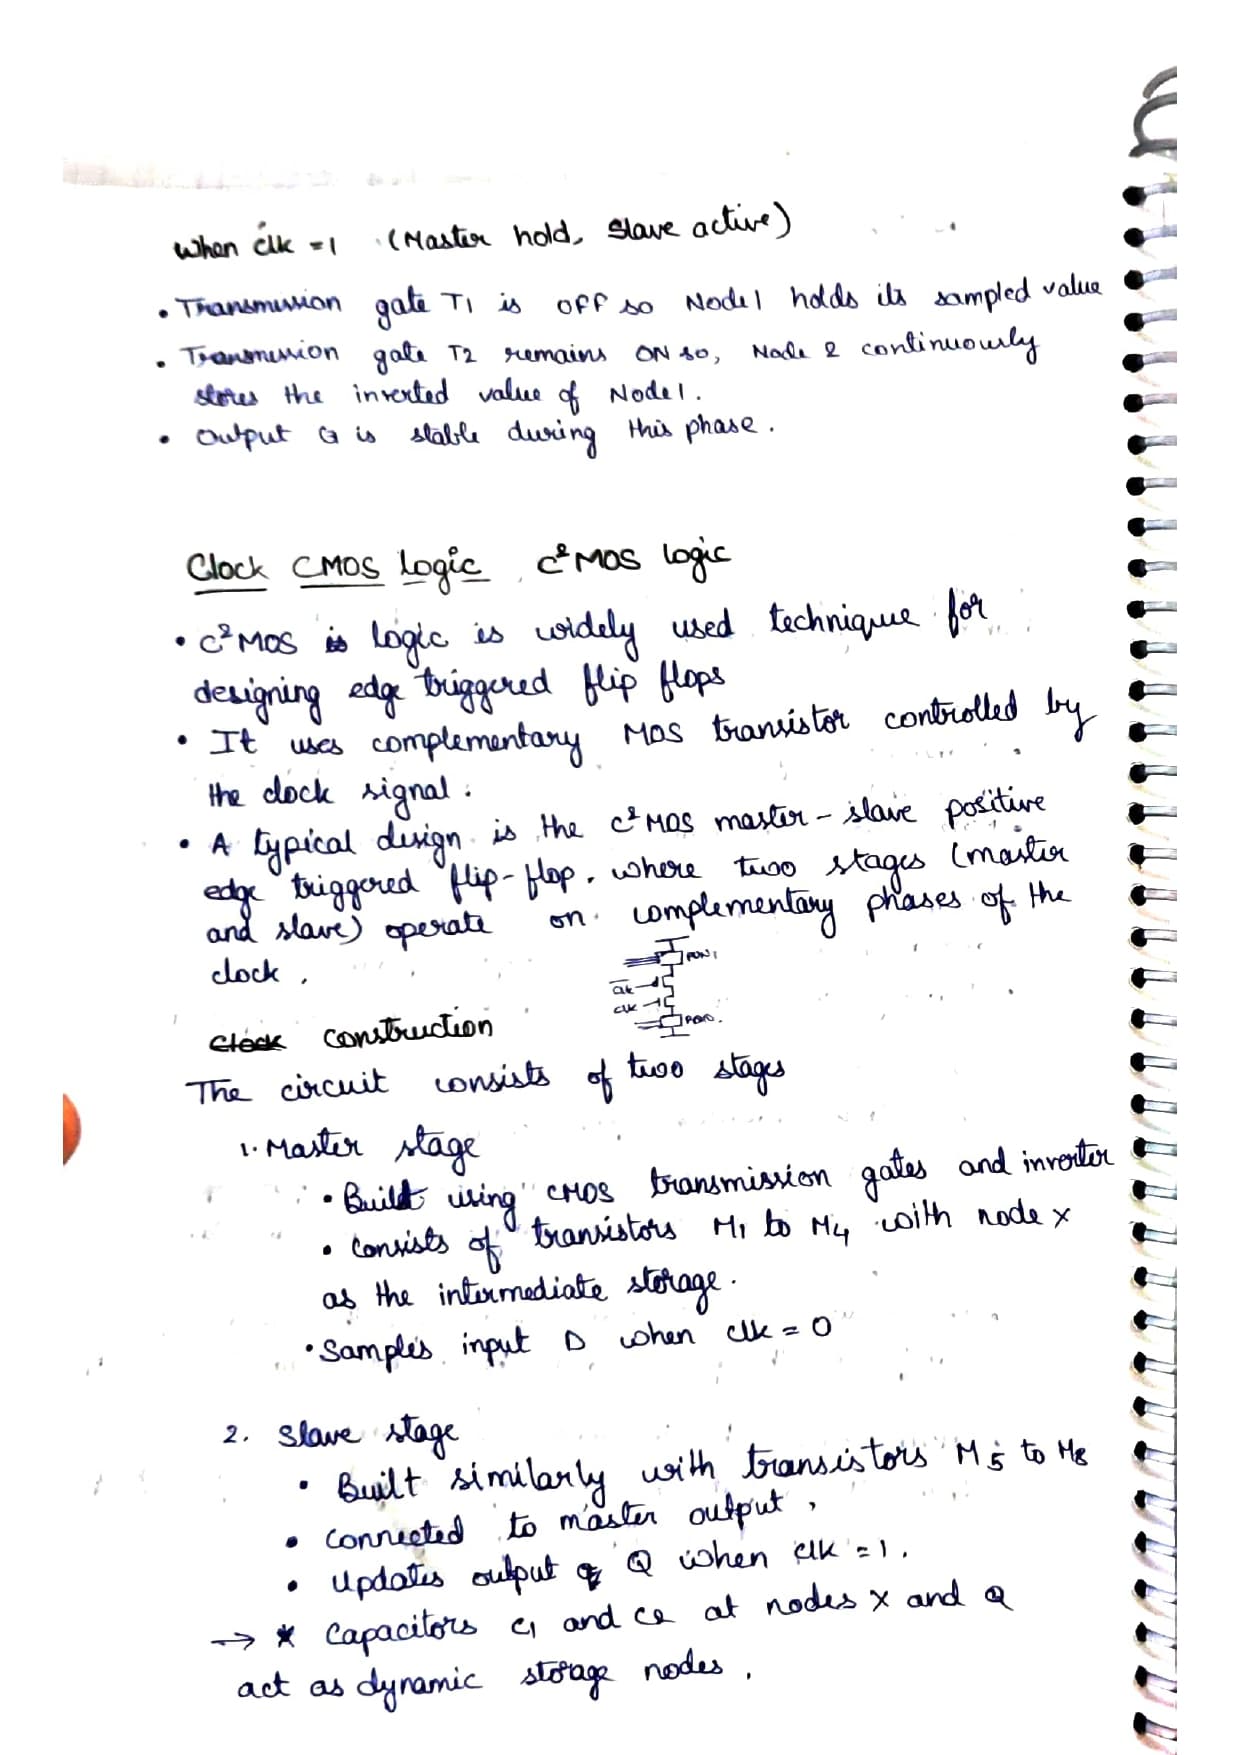 When clk = 1 (Master hold, Slave active)
• Transmission gate T1 is OFF so Node1 holds its sampled value
• Transmission gate T2 remains ON so, Node 2 continuously
stores the inverted value of Node1.
• Output Q is stable during this phase.
Clock CMOS Logic, C²MOS logic
• C²MOS is logic is widely used technique for
designing edge triggered flip flops
• It uses complementary MOS transistor controlled by
the clock signal.
• A typical design is the C²MOS master-slave positive
edge triggered flip-flop, where two stages (master
and slave) operate on complementary phases of the
clock.
PUN1
clk
clk
PDN
Clock construction
The circuit consists of two stages
1. Master stage
• Built using CMOS transmission gates and inverter
• Consists of transistors M1 to M4 with node X
as the intermediate storage.
• Samples input D when clk = 0
2. Slave stage
• Built similarly with transistors M5 to M8
• connected to master output,
• Updates output Q when clk = 1.
→ * Capacitors C1 and C2 at nodes X and Q
act as dynamic storage nodes.